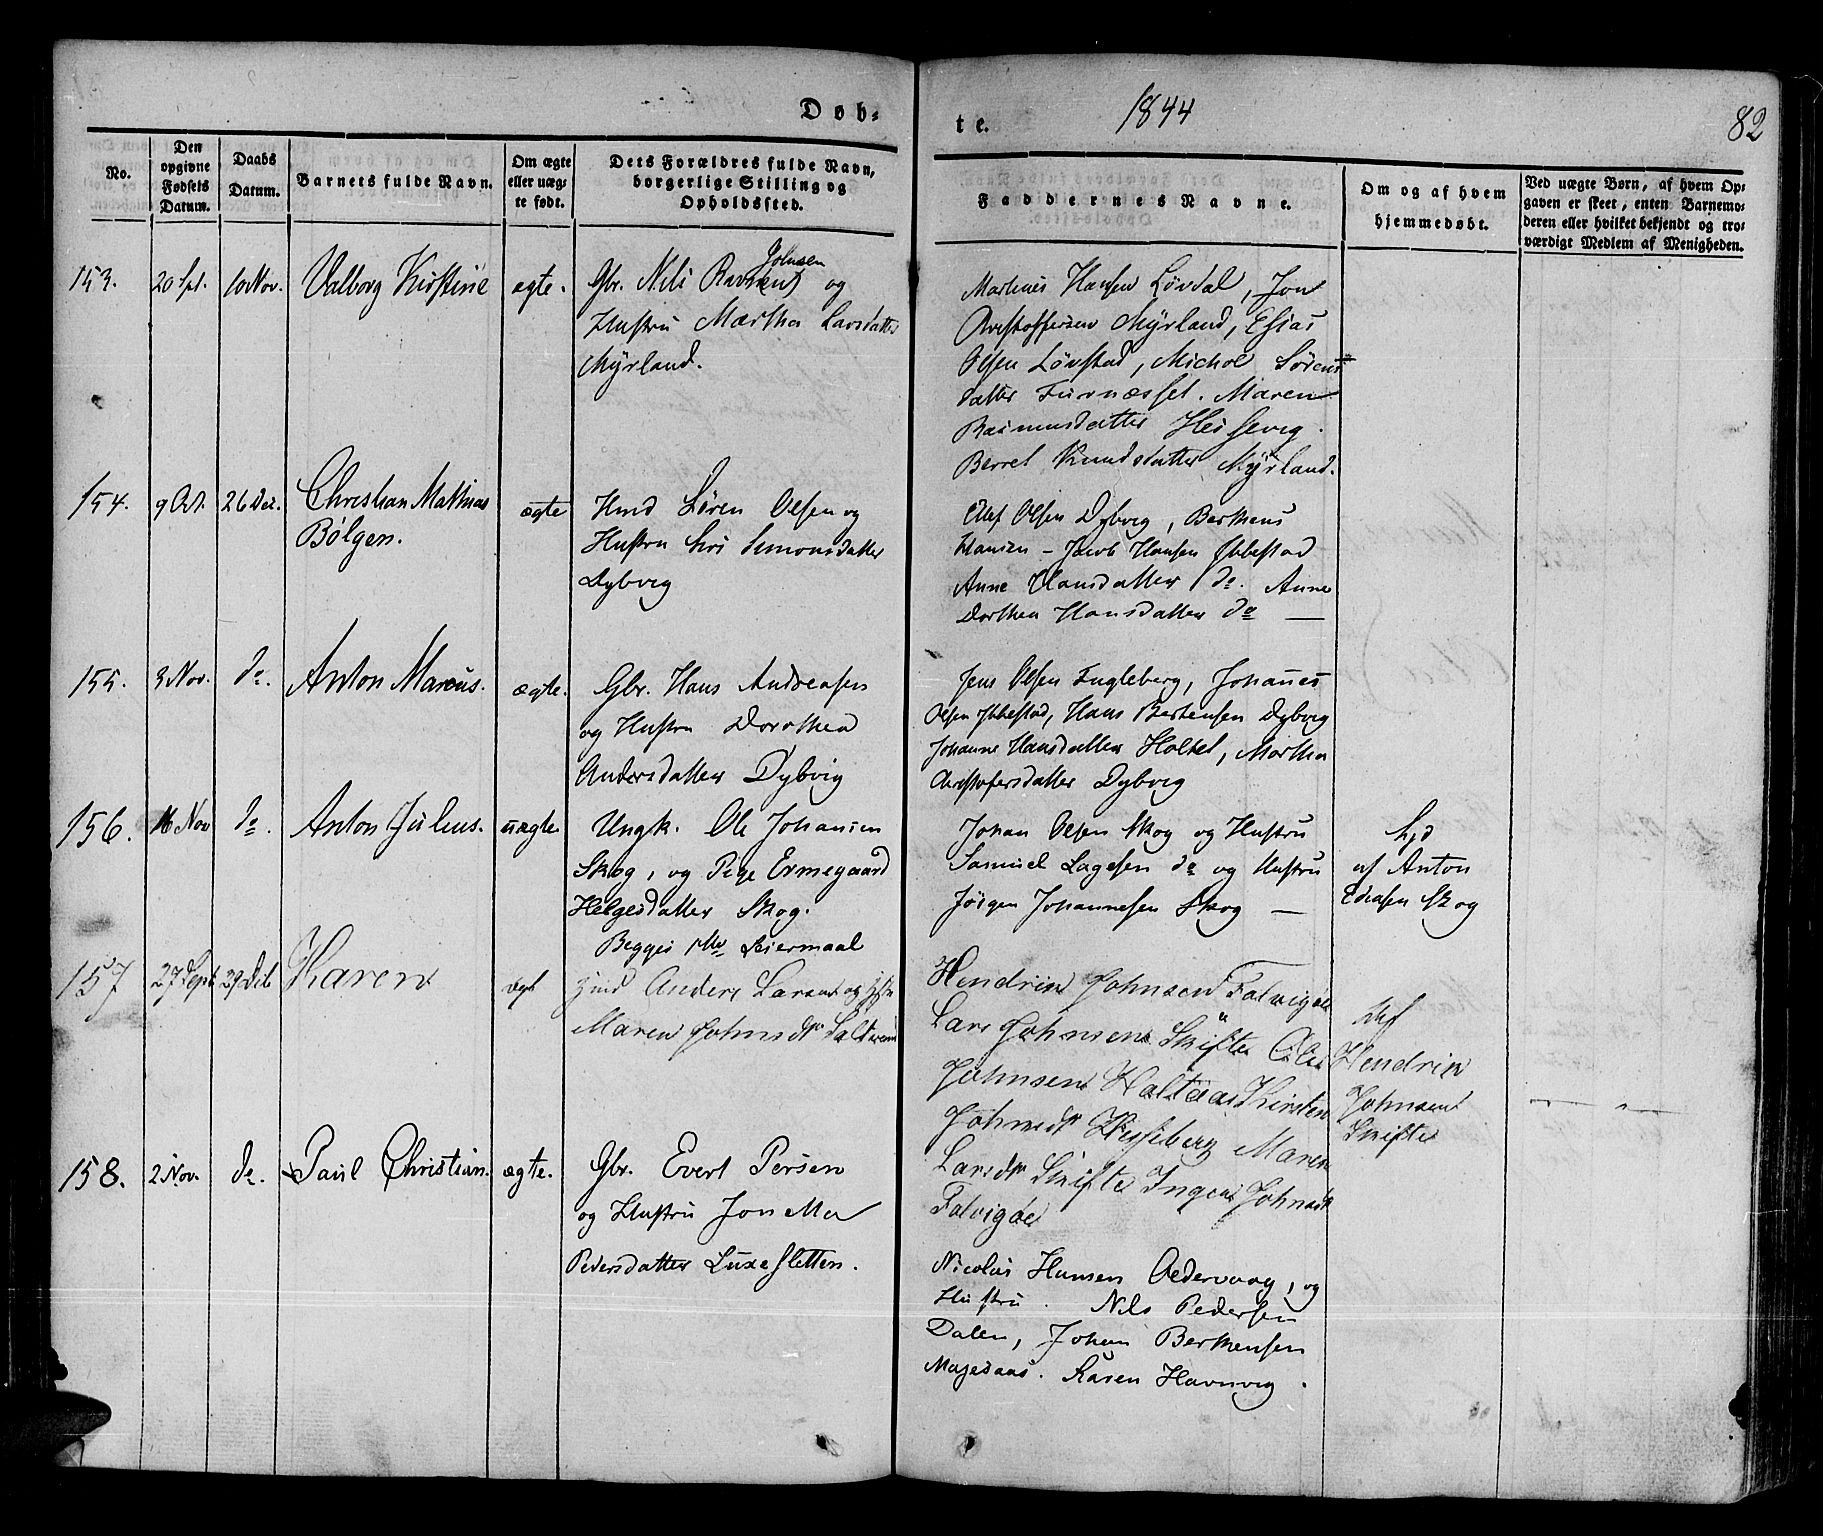 Døb-
te.
1844
82
No.
Den opgivne Fødsels Datum.
Daabs Datum.
Barnets fulde Navn.
Om ægte eller uægte født.
Dets Forældres fulde Navn, borgerlige Stilling og Opholdssted.
Faddernes Navne.
Om og af hvem hjemmedøbt.
Ved uægte Børn, af hvem Opgaven er skeet, enten Barnemoderen eller hvilket bekjendt og troværdigt Medlem af Menigheden.
153. 20 Spt. 10 Nov. Valborg Kirstine ægte. Gbr. Nils Johnsen og
Hustru Martha Larsdatter
Myrland.
Martinus Hansen Løvdal, Jon
Christoffersen Myrland, Esias
Olsen Løvstad, Michol Sørens
datter Furnæsset. Maren
Rasmusdatter Hessevig.
Berret Knudsdatter Myrland.
154. 9 Oct. 26 Dec. Christian Mathias ægte Hmd Søren Olsen og
Bølgen.
Hustru Siri Simonsdatter
Dybvig
Ellef Olsen Dybvig, Berthens
Hansen - Jacob Hansen Ibbestad
Anne Hansdatter do. Anne
Dorthea Hansdatter do —
155. 3 Nov. do. Anton Marcus. ægte. Gbr. Hans Andreasen
og Hustru Dorothea
Andersdatter Dybvig
Jens Olsen Fugleberg, Johannes
Olsen Ibbestad, Hans Bertensen Dybvig
Johanne Hansdatter Holtet, Martha
Christofersdatter Dybvig
156. 16 Nov do. Anton Julius. uægte Ungk. Ole Johansen
Skog, og Pige Ermegaard
Helgesdatter Skog.
Begges Leiermaal
Johan Olsen Skog og Hustru
Samuel Lagesen do og Hustru
Jørgen Johannesen Skog —
hjd
af Anton
Skog
157 27 Sept 29 Dec Karen ægt Hmd Anders Larsen og Hstr
Maren Johnsdr
Hendrik Johnsen Falvigøe
Lars Johnsen Skifte Ole
Johnsen Holtaas Kirsten
Johnsdr Maren
Larsdr Skifte Johnsdr
Falvigøe
Hendrik
Johnsen
Skifte
158. 2 Nov. do. Paul Christian. ægte. Gbr. Evert Persen
og Hustru
Pedersdatter Luxesletten.
Nicolai Hansen Oedervaag, og
Hustru. Nils Pedersen
Dalen, Johan Berthensen
Magesaas. Karen Havnvig.